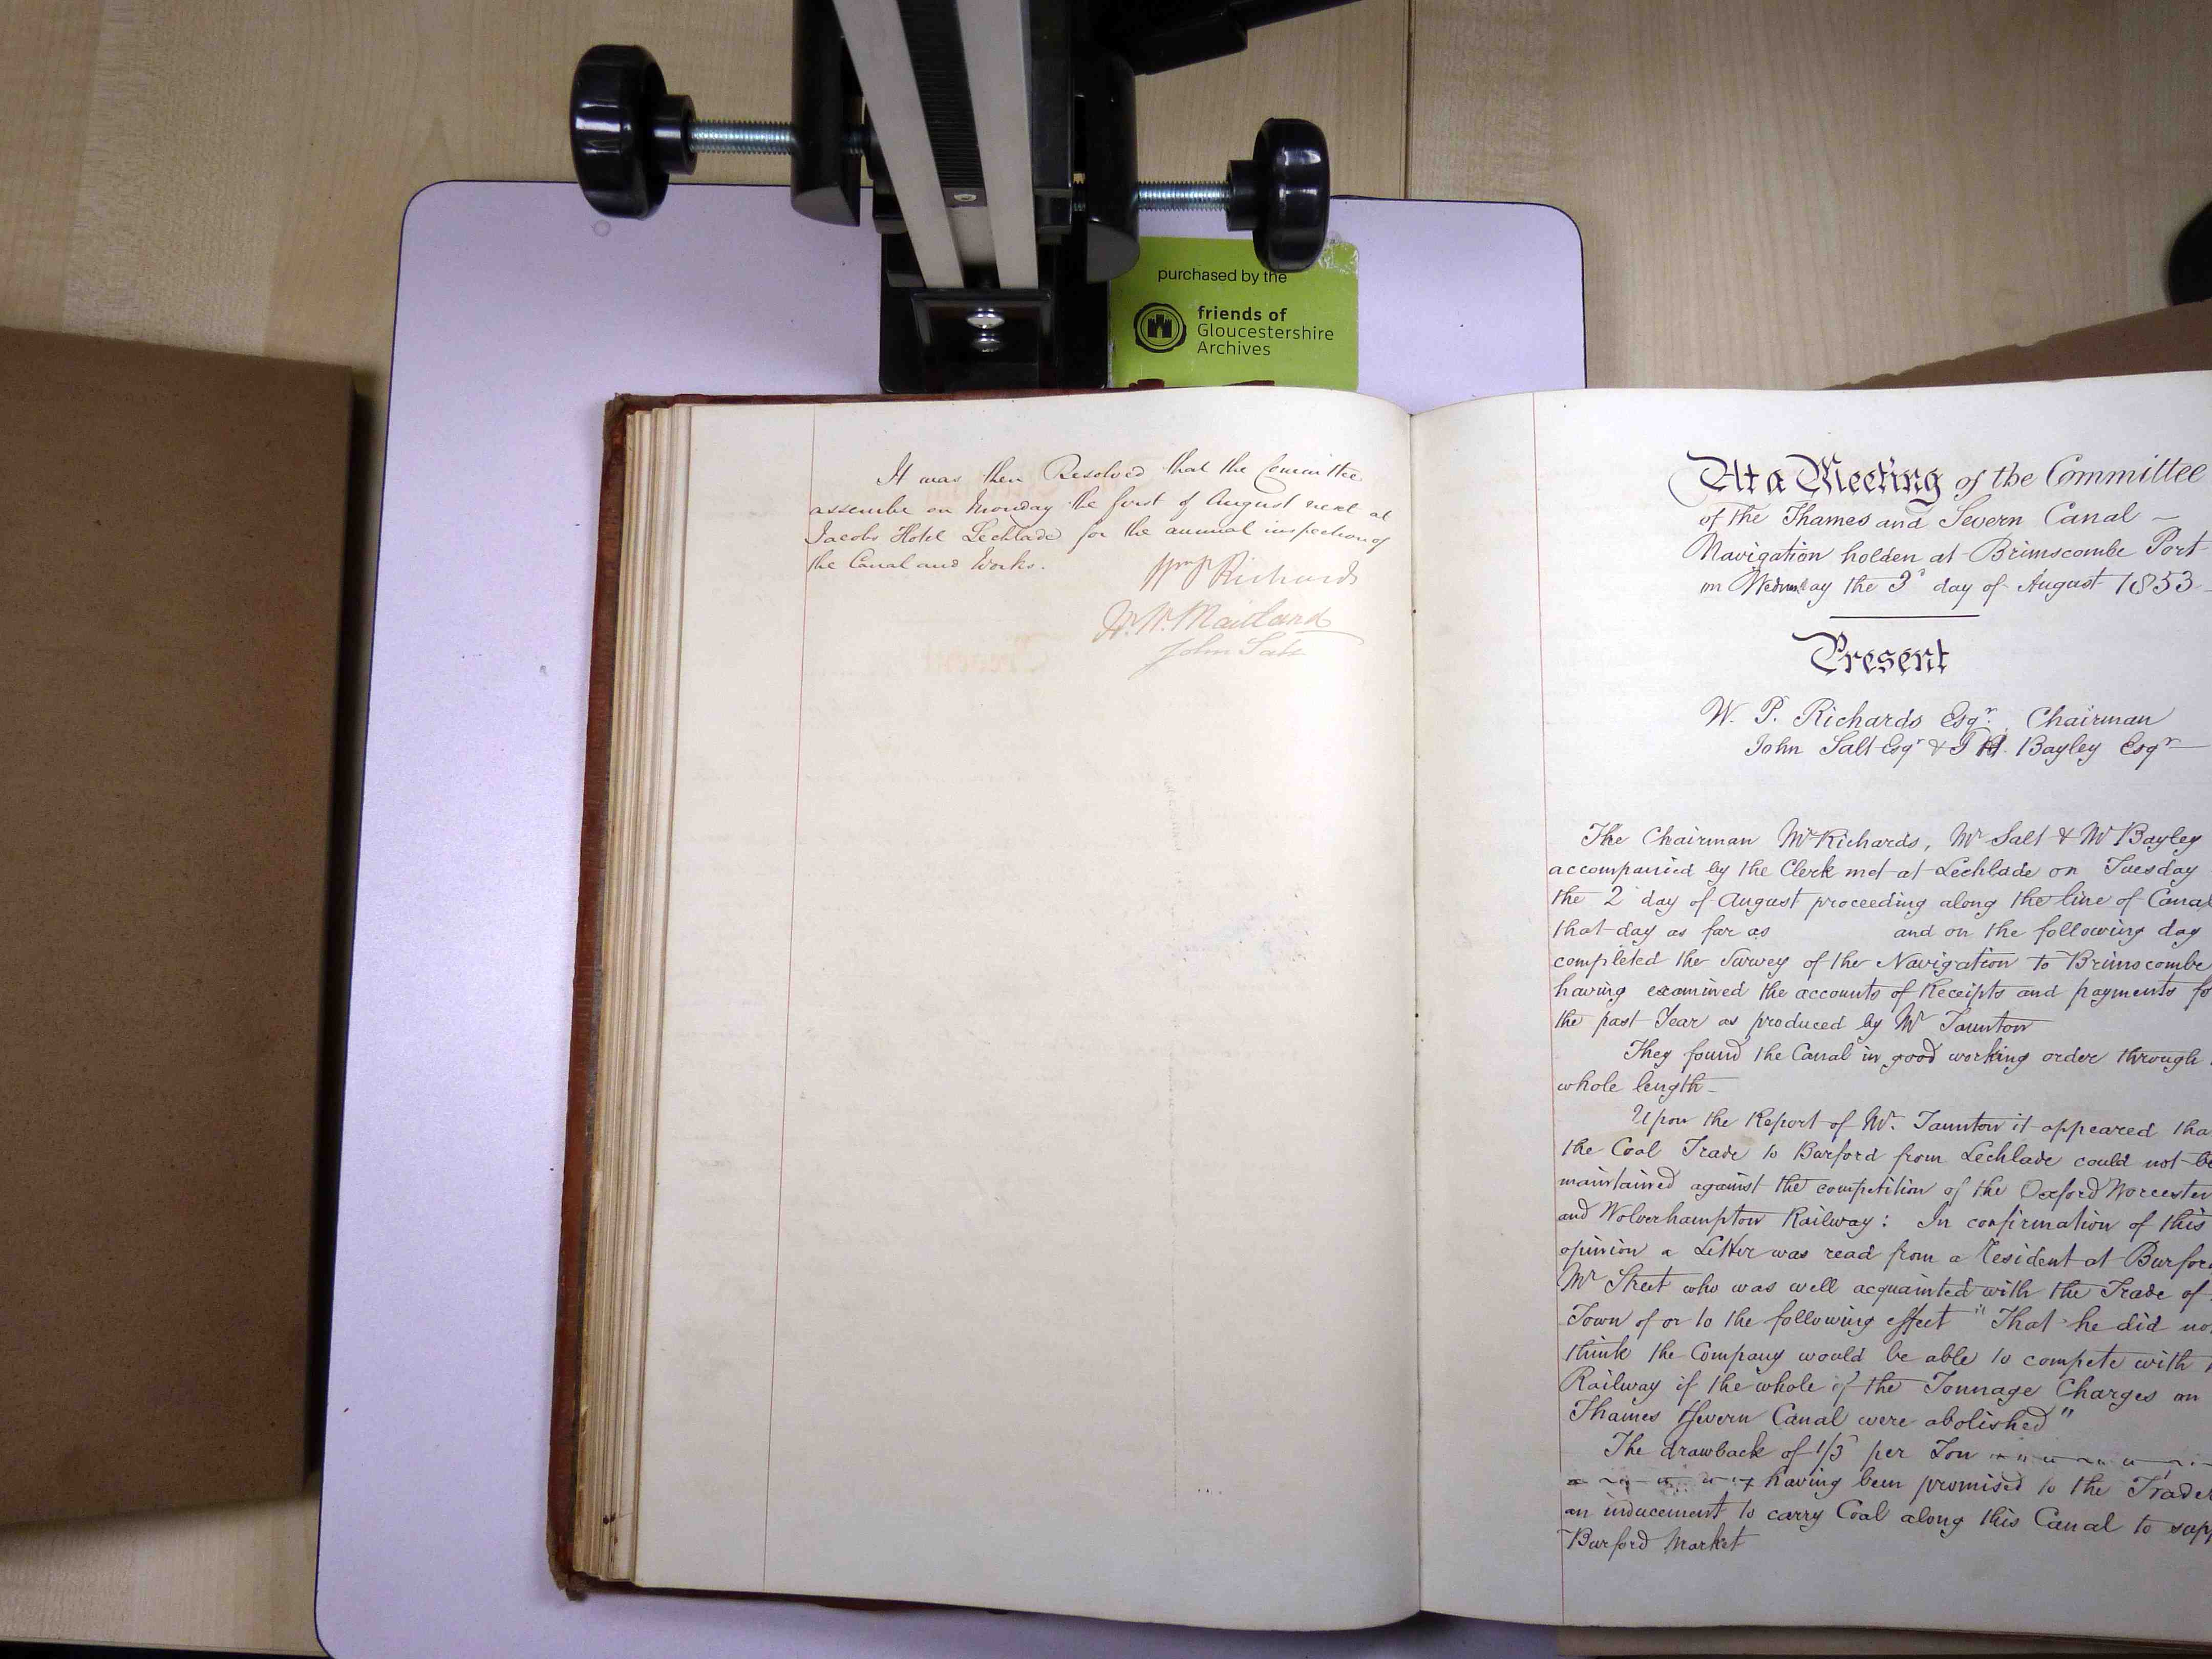 purchased by the
friends of
Gloucestershire
Archives
It was then Resolved that the Committee
assemble on Monday the first of August next at
Jacobs Hotel Lechlade for the annual inspection of
the Canal and Works.
Wm P Richards
W. W. Maitland
John Salt
At a Meeting of the Committee
of the Thames and Severn Canal –
Navigation holden at Brimscombe Port
on Wednesday the 3d day of August 1853
Present
W. P. Richards Esqr. Chairman
John Salt Esqr & T H. Bayley Esqr
The Chairman Mr Richards, Mr Salt & Mr Bayley
accompanied by the Clerk met at Lechlade on Tuesday
the 2d day of August proceeding along the line of Canal
that day as far as and on the following day
completed the Survey of the Navigation to Brimscombe
having examined the accounts of Receipts and payments fo
the past Year as produced by Mr Taunton
They found the Canal in good working order through
whole length –
Upon the Report of Mr. Taunton it appeared tha
the Coal Trade to Burford from Lechlade could not be
maintained against the competition of the Oxford Worcester
and Wolverhampton Railway: In confirmation of this
opinion a Letter was read from a resident at Burfor
Mr Street who was well acquainted with the Trade of
Town of or to the following effect "That he did no
think the Company would be able to compete with
Railway if the whole of the Tonnage Charges on
Thames & Severn Canal were abolished"
The drawback of 1/3d per Ton
having been promised to the Trader
an inducement to carry Coal along this Canal to sup
Burford Market